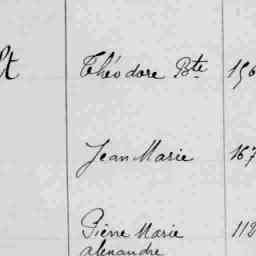 lt Théodore Bte 156
Jean Marie 167
Pierre Marie 112
alexandre